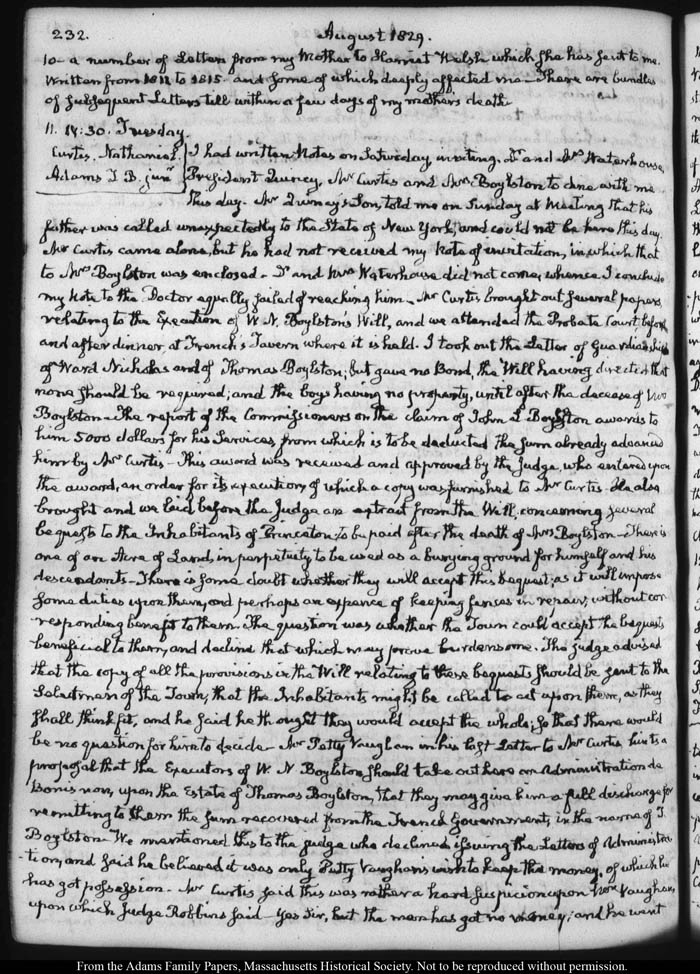 232. August 1829.
10— a number of Letters from my Mother to Harriet Welsh which she has sent to me.
written from 1811 to 1815. and some of which deeply affected me— There are bundles
of subsequent Letters till within a few days of my mother's death.
11. IV:30. Tuesday.
Curtis. Nathaniel. I had written Notes on Saturday inviting. Dr and Mrs Waterhouse,
Adams I. B. junr President Quincy, Mr Curtis and Mrs Boylston to dine with me
this day. Mr Quincy's Son, told me on Sunday at Meeting that his
father was called unexpectedly to the State of New York, and could not be here this day.
Mr Curtis came alone, but he had not received my Note of invitation, in which that
to Mrs Boylston was enclosed— Dr and Mrs Waterhouse did not come, whence I conclude
my Note to the Doctor equally failed of reaching him— Mr Curtis brought out several papers,
relating to the Execution of W. N. Boylston's Will, and we attended the Probate Court before
and after dinner, at French's Tavern where it is held. I took out the Letter of Guardianship
of Ward Nicholas and of Thomas Boylston; but gave no Bond, the Will having directed that
none should be required; and the boys having no property, until after the decease of Mrs
Boylston— The report of the Commissioners on the claim of John L Boylston awards to
him 5000 dollars for his Services, from which is to be deducted the sum already advanced
him by Mr Curtis— This award was received and approved by the Judge, who entered upon
the award, an order for its execution, of which a copy was furnished to Mr Curtis. He also
brought and we laid before the Judge an extract from the Will, concerning several
bequests to the Inhabitants of Princeton, to be paid after the death of Mrs Boylston— There is
one of an Acre of Land, in perpetuity to be used as a burying ground for himself and his
descendants— There is some doubt whether they will accept this bequest; as it will impose
some duties upon them, and perhaps an expence of keeping fences in repair, without cor
responding benefit to them. The question was whether the Town could accept the bequests
beneficial to them, and decline that which may prove burdensome. The Judge advised
that the copy of all the provisions in the Will relating to these bequests should be sent to the
Selectmen of the Town, that the Inhabitants might be called to act upon them, as they
shall think fit, and he said he thought they would accept the whole; so that there would
be no question for him to decide— Mr Petty Vaughan in his last Letter to Mr Curtis hints a
proposal that the Executors of W. N Boylston, should take out here an Administration de
Bonis non, upon the Estate of Thomas Boylston, that they may give him a full discharge for
remitting to them the sum recovered from the French Government, in the name of T.
Boylston— We mentioned this to the Judge who declined issuing the Letters of Administra
-tion, and said he believed it was only Petty Vaughan's wish to keep the money, of which he
has got possession— Mr Curtis said this was rather a hard suspicion upon Mr Vaughan,
upon which Judge Robbins said— Yes Sir, but the man has got no money; and he went
From the Adams Family Papers, Massachusetts Historical Society. Not to be reproduced without permission.